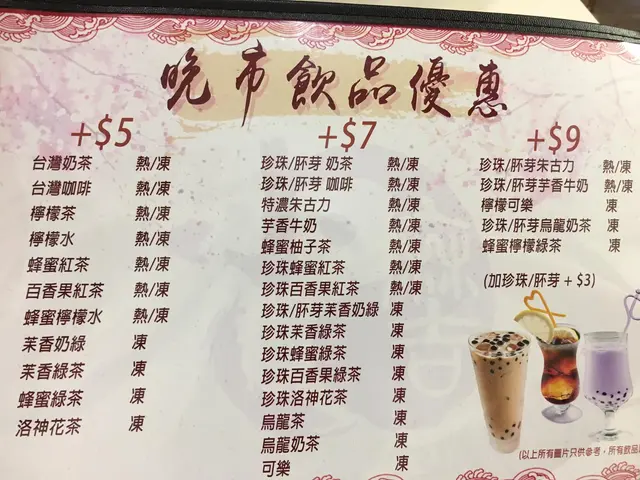 晚市飲品優惠
+$5
台灣奶茶 熱/凍
台灣咖啡 熱/凍
檸檬茶 熱/凍
檸檬水 熱/凍
蜂蜜紅茶 熱/凍
百香果紅茶 熱/凍
蜂蜜檸檬水 熱/凍
茉香奶綠 凍
茉香綠茶 凍
蜂蜜綠茶 凍
洛神花茶 凍
+$7
珍珠/胚芽 奶茶 熱/凍
珍珠/胚芽 咖啡 熱/凍
特濃朱古力 熱/凍
芋香牛奶 熱/凍
蜂蜜柚子茶 熱/凍
珍珠蜂蜜紅茶 熱/凍
珍珠百香果紅茶 熱/凍
珍珠/胚芽茉香奶綠 凍
珍珠茉香綠茶 凍
珍珠蜂蜜綠茶 凍
珍珠百香果綠茶 凍
珍珠洛神花茶 凍
烏龍茶 凍
烏龍奶茶 凍
可樂 凍
+$9
珍珠/胚芽朱古力 熱/凍
珍珠/胚芽芋香牛奶 熱/凍
檸檬可樂 凍
珍珠/胚芽烏龍奶茶 凍
蜂蜜檸檬綠茶 凍
(加珍珠/胚芽 + $3)
(以上所有圖片只供參考，所有飲品